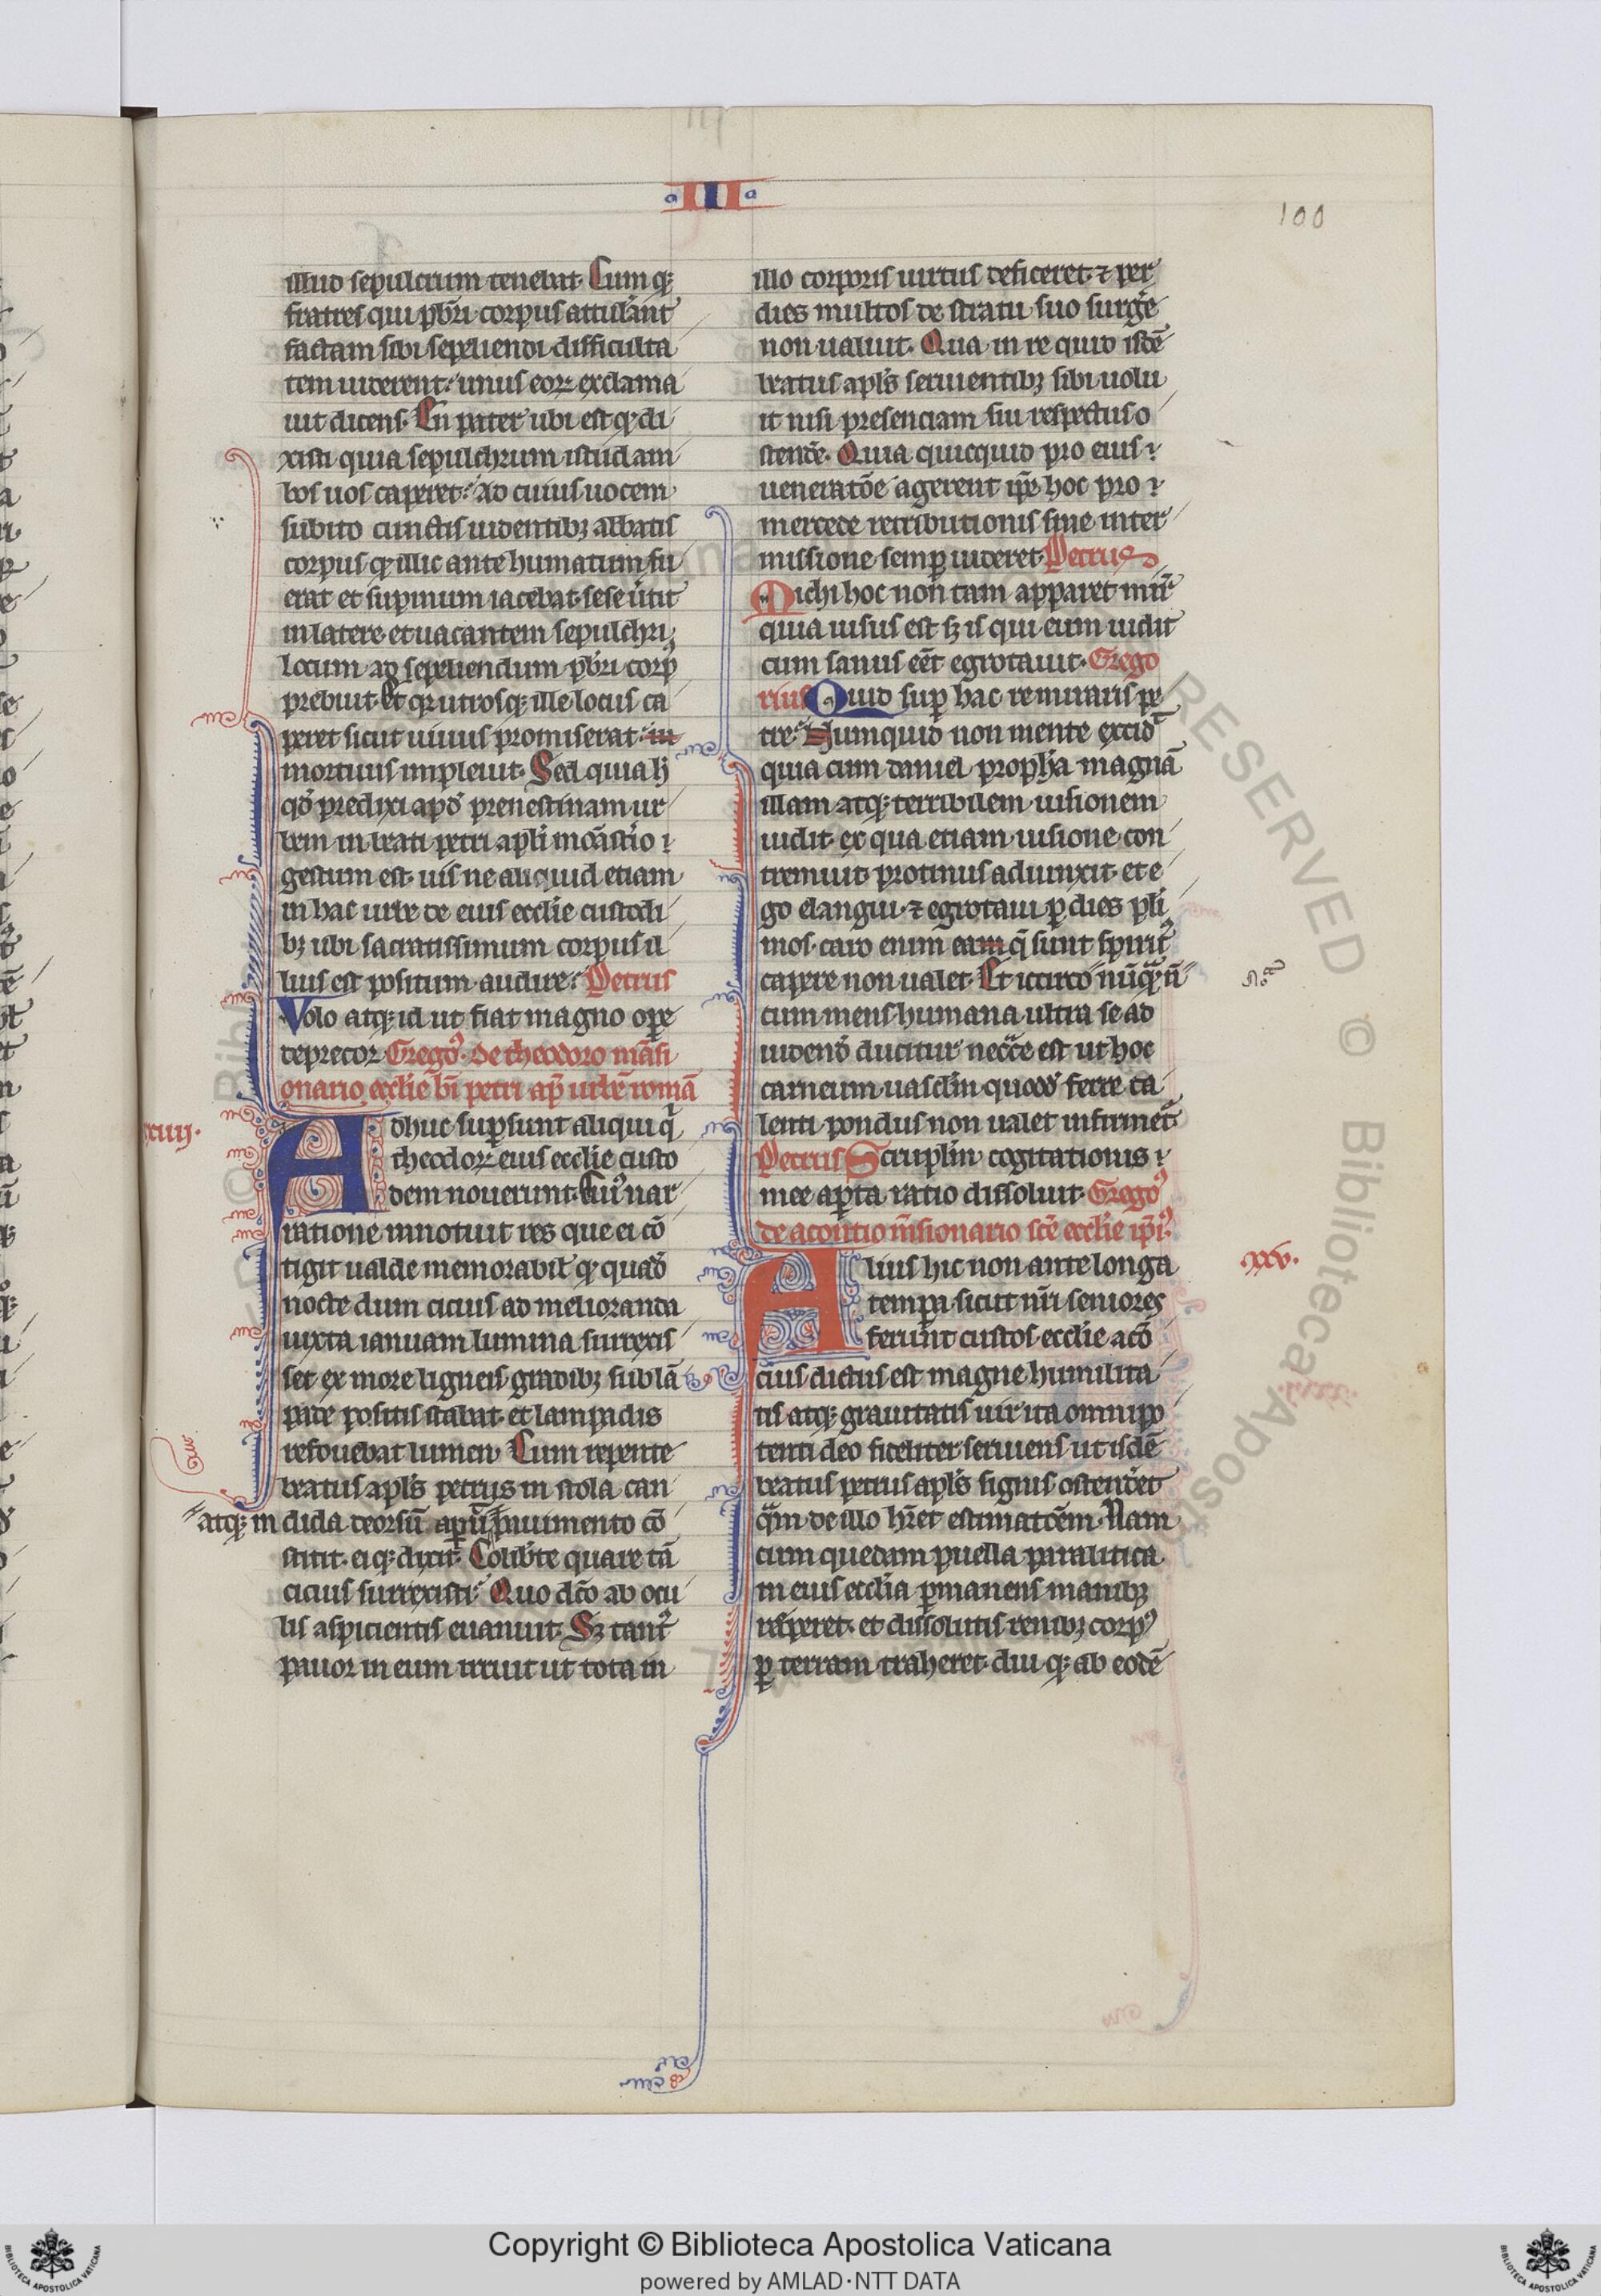 III
100
illud sepulcrum tenebat. Cumq;
fratres qui pb̅ri corpus attuler̅nt
factam sibi sepeliendi difficulta
tem uiderent: unus eoꝝ exclama
uit dicens. En pater ubi est qͥ di
xisti quia sepulchrum istud am
bos uos caperet: Ad cuius uocem
subito cunctis uidentibꝫ abbatis
corpus qͥ illic ante humatum fu
erat et supinum iacebat sese ūtit
in latere et uacantem sepulchri
locum ad sepeliendum pb̅ri corpꝰ
prebuit. Et qꝛ utrosq; ille locus ca
peret sicut uiuus promiserat: in
mortuus impleuit. Sed quia h̅
qd̅ predixi apd̅ prenestinam ur
bem in beati petri apl̅i mo̅ast̅io
gestum est. uis ne aliquid etiam
in hac urbe de eius eccl̅ie custodi
bꝫ ubi sacratissimum corpus il
lius est positum audire: Petrus
Volo atq; id ut fiat magno ope̅
deprecor Gregoꝰ. de theodoro ma̅si
onario eccl̅ie bi̅ petri ap̅ urbe̅ roma̅
xxiiij.
Adhuc suꝑsunt aliqui qͥ
theodoꝝ eius eccl̅ie custo
dem nouerunt. Cuiꝰ nar
ratione innotuit res que ei co̅
tigit ualde memorabil̅ qͥ quad̅
nocte dum cicius ad melioranda
iuxta ianuam lumina surrexis
set ex more ligneis gradibꝫ sub la̅
pade positis stabat. et lampadis
refouebat lumen. Cum repente
beatus apl̅s petrus in stola can
atq; in dida deorsu̅ apu̅ pauimento co̅
stitit. eiq; dixit. Colib̅te quare ta̅
cicius surrexisti: Quo dc̅o ab ocu
lis aspicientis euanuit. Sꝫ tantꝰ
pauor in eum irruit ut tota in
illo corporis uirtus deficeret. ⁊ per
dies multos de stratu suo surge̅
non ualuit. Qua in re quid isde̅
beatus apl̅s seruientibꝫ sibi uolu
it nisi presenciam sui respectus o
stende̅. Quia quicquid pro eius
ueneratōe agerent ip̅e hoc pro
mercede retributionis sine inter
missione semꝑ uideret. Petrus
Michi hoc non tam apparet mir̅
quia uisus est sꝫ is qui eum uidit
cum sanus ee̅t egrotauit. Grego
rius Quid suꝑ hac re miraris pe
tre: Numquid non mente excid̅
quia cum daniel proph̅a magna̅
illam atq; terribilem uisionem
uidit. ex qua etiam uisione con
tremuit protinus adiunxit. et e
go elangui. ⁊ egrotaui ꝑ dies pl̅i
mos. caro enim eam q̅ sunt spiritꝰ
capere non ualet. Et iccirco nu̅qͣ; n̅
cum mens humana ultra se ad
uidend̅ ducitur necc̅e est ut hoc
carneum uascl̅m quod ferre ta
lenti pondus non ualet infirmet̅
Petrus Scrupl̅m cogitationis
mee aꝑta ratio dissoluit. Gregoꝰ
de acontio m̅sionario sc̅e eccl̅ie ip̅iꝰ.
xxv.
Alius hic non ante longa
tempa sicut nr̅i seniores
ferunt custos eccl̅ie aco̅
cius dictus est magne humilita
tis atq; grauitatis uir ita omnipo
tenti deo fideliter seruiens ut isde̅
beatus petrus apl̅s signis ostenderet
qͣm de illo hr̅et estimatōem. Nam
cum quedam puella paralitica
in eius eccl̅ia ꝑmanens manibꝫ
reperet. et dissolutis renibꝫ corpꝰ
ꝑ terram traheret. diuq; ab eode̅
Copyright © Biblioteca Apostolica Vaticana
powered by AMLAD·NTT DATA